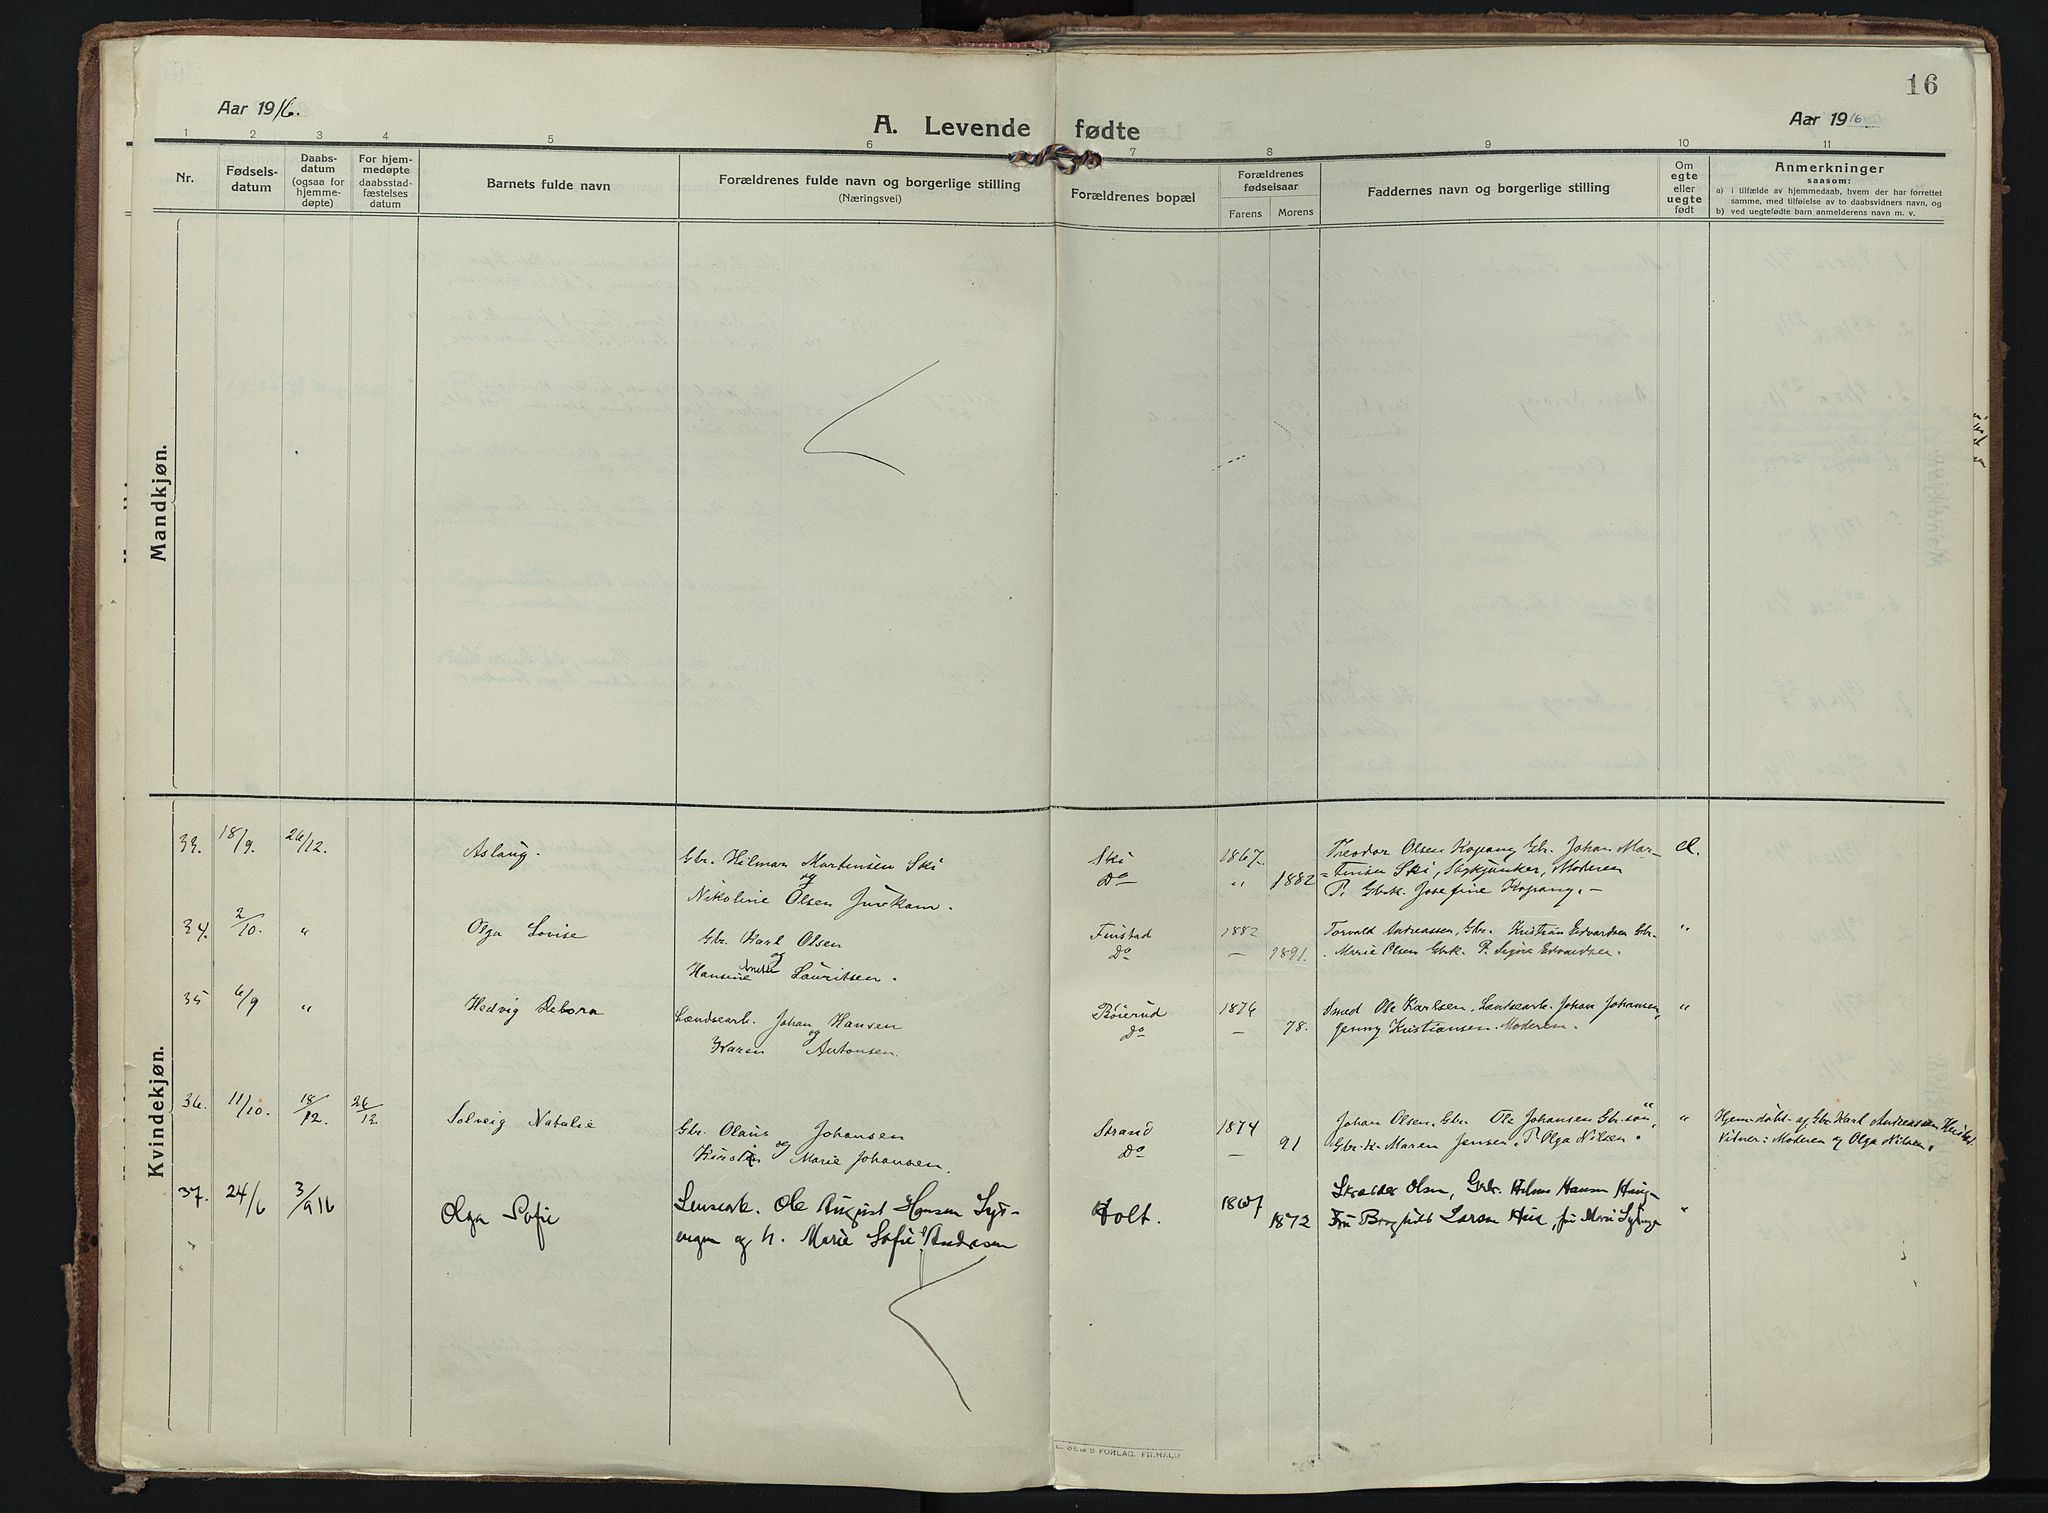 16
Aar 1916.
A. Levende fødte
Aar 1916
1 2 3 4 5 6 7 8 9 10 11
Nr.
Fødsels-
datum
Daabs-
datum
(ogsaa for
hjemme-
døpte)
For hjem-
medøpte
daabsstad-
fæstelses
datum
Barnets fulde navn
Forældrenes fulde navn og borgerlige stilling
(Næringsvei)
Forældrenes bopæl
Forældrenes
fødselsaar
Farens Morens
Faddernes navn og borgerlige stilling
Om
egte
eller
uegte
født
Anmerkninger
saasom:
a) i tilfælde av hjemmedaab, hvem der har forrettet
samme, med tilføielse av to daabsvidners navn, og
b) ved uegtefødte barn anmelderens navn m. v.
Mandkjøn.
Kvindekjøn.
33. 18/9. 26/12. Aslaug.
Gbr. Hilmar Martinsen Ski
og
Nikoline Olsen
Ski 1867.
Do " 1882
Theodor Olsen Kopang Gbr. Johan Mar-
tinsen Ski, Moderen
P. Gbrk. Josefine Kopang.
34. 2/10. " Olga Lovise
Gbr. Karl Olsen
og
Hansine Lauritsen.
Finstad 1882
Do — 1891.
Torvald Andreassen, Gbr. Kristian Edvardsen Gbr.
Marie Olsen Gbrk. P. Signe Edvardsen. "
35 6/9 " Hedvig Debora
Johan Hansen
og
Karen Antonsen.
Bøierud 1876
Do — 78.
Ole Karlsen, Johan Johansen,
Jenny Kristiansen. Moderen. "
36. 11/10. 18/12. 26/12 Solveig Natalie
Gbr. Olaus Johansen
og
Marie Johansen.
Strand 1874
Do — 91
Johan Olsen, Gbr. Ole Johansen Gbr.søn,
Gbr.k. Maren Jensen. P. Olga Nilsen. "
Hjemdøbt af Gbr. Karl Andreassen
Vitner: Moderen og Olga Nilsen.
37. 24/6 3/9 16 Olga Sofie
Ole August Hansen
og h. Marie Sofie Andresen
Holt. 1867
1872
Olsen, Gbr. Hansen Haug
Fru Borghild Larsen "
E. SEM'S FORLAG, FR.HALD